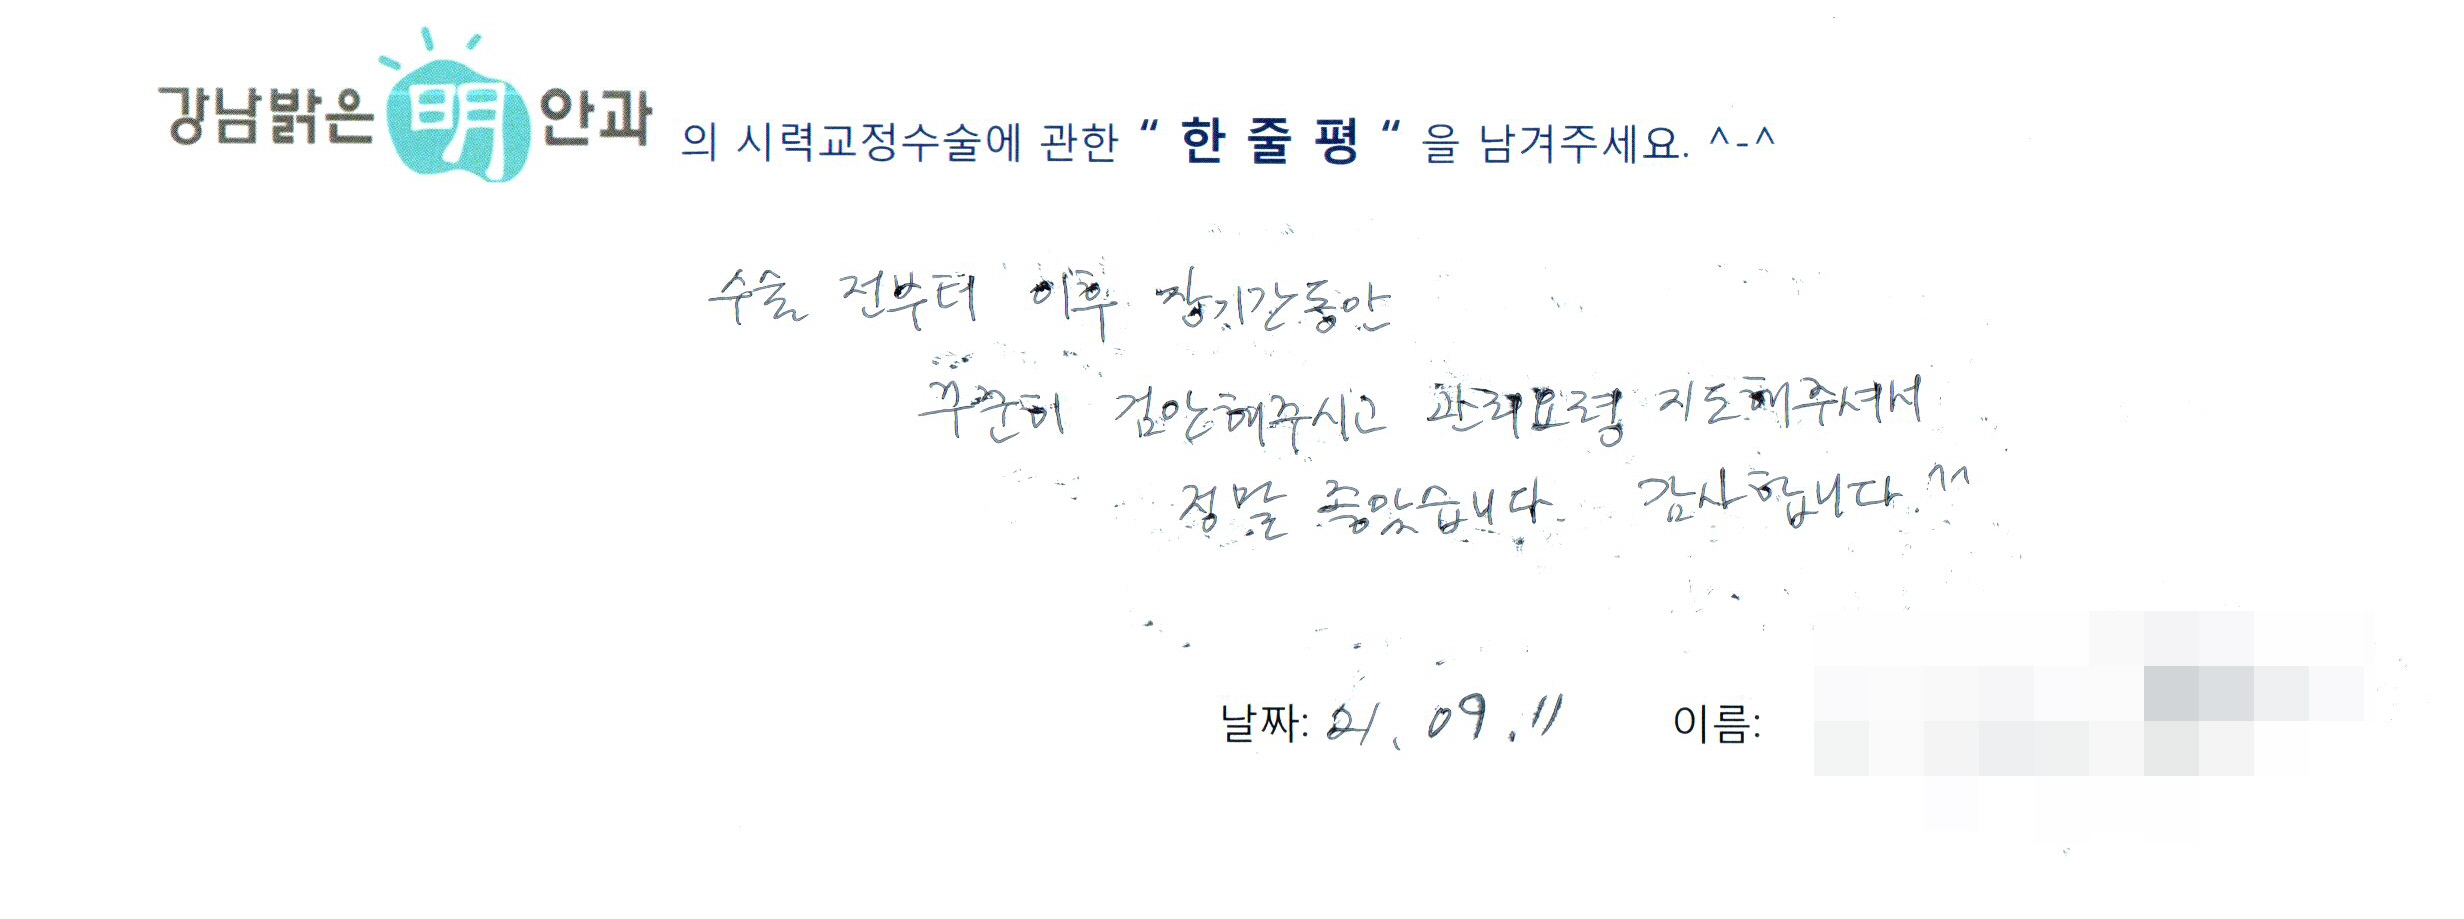 강남밝은 明 안과 의 시력교정수술에 관한 “ 한 줄 평 “ 을 남겨주세요. ^-^
수술 전부터 이후 장기간동안
꾸준히 검안해주시고 관리요령 지도해주셔서
정말 좋았습니다. 감사합니다.^^
날짜: 21. 09. 11 이름: